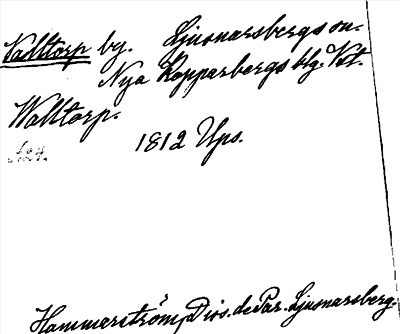 Valltorp by. Ljusnarsbergs sn.
Nya Kopparbergs blg. Vstm.
Walltorp.
1812 Ups.
Hammerström, Diss. de Par. Ljusnarsberg.